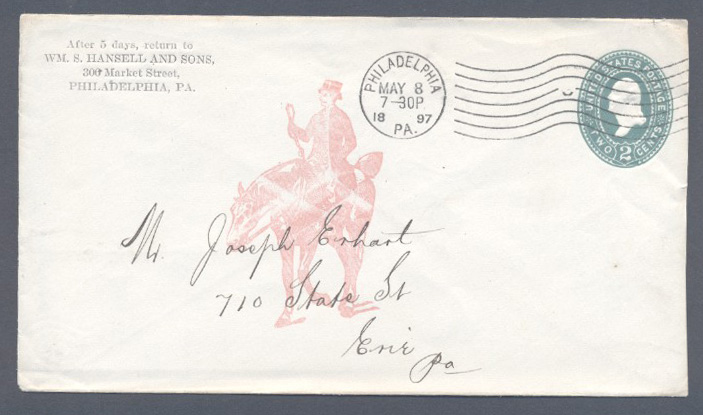 After 5 days, return to
WM. S. HANSELL AND SONS,
300 Market Street,
PHILADELPHIA, PA.
PHILADELPHIA
MAY 8
7-30P
18 97
PA.
UNITED STATES POSTAGE
TWO 2 CENTS
Mr. Joseph Erhart
710 State St
Erie
Pa